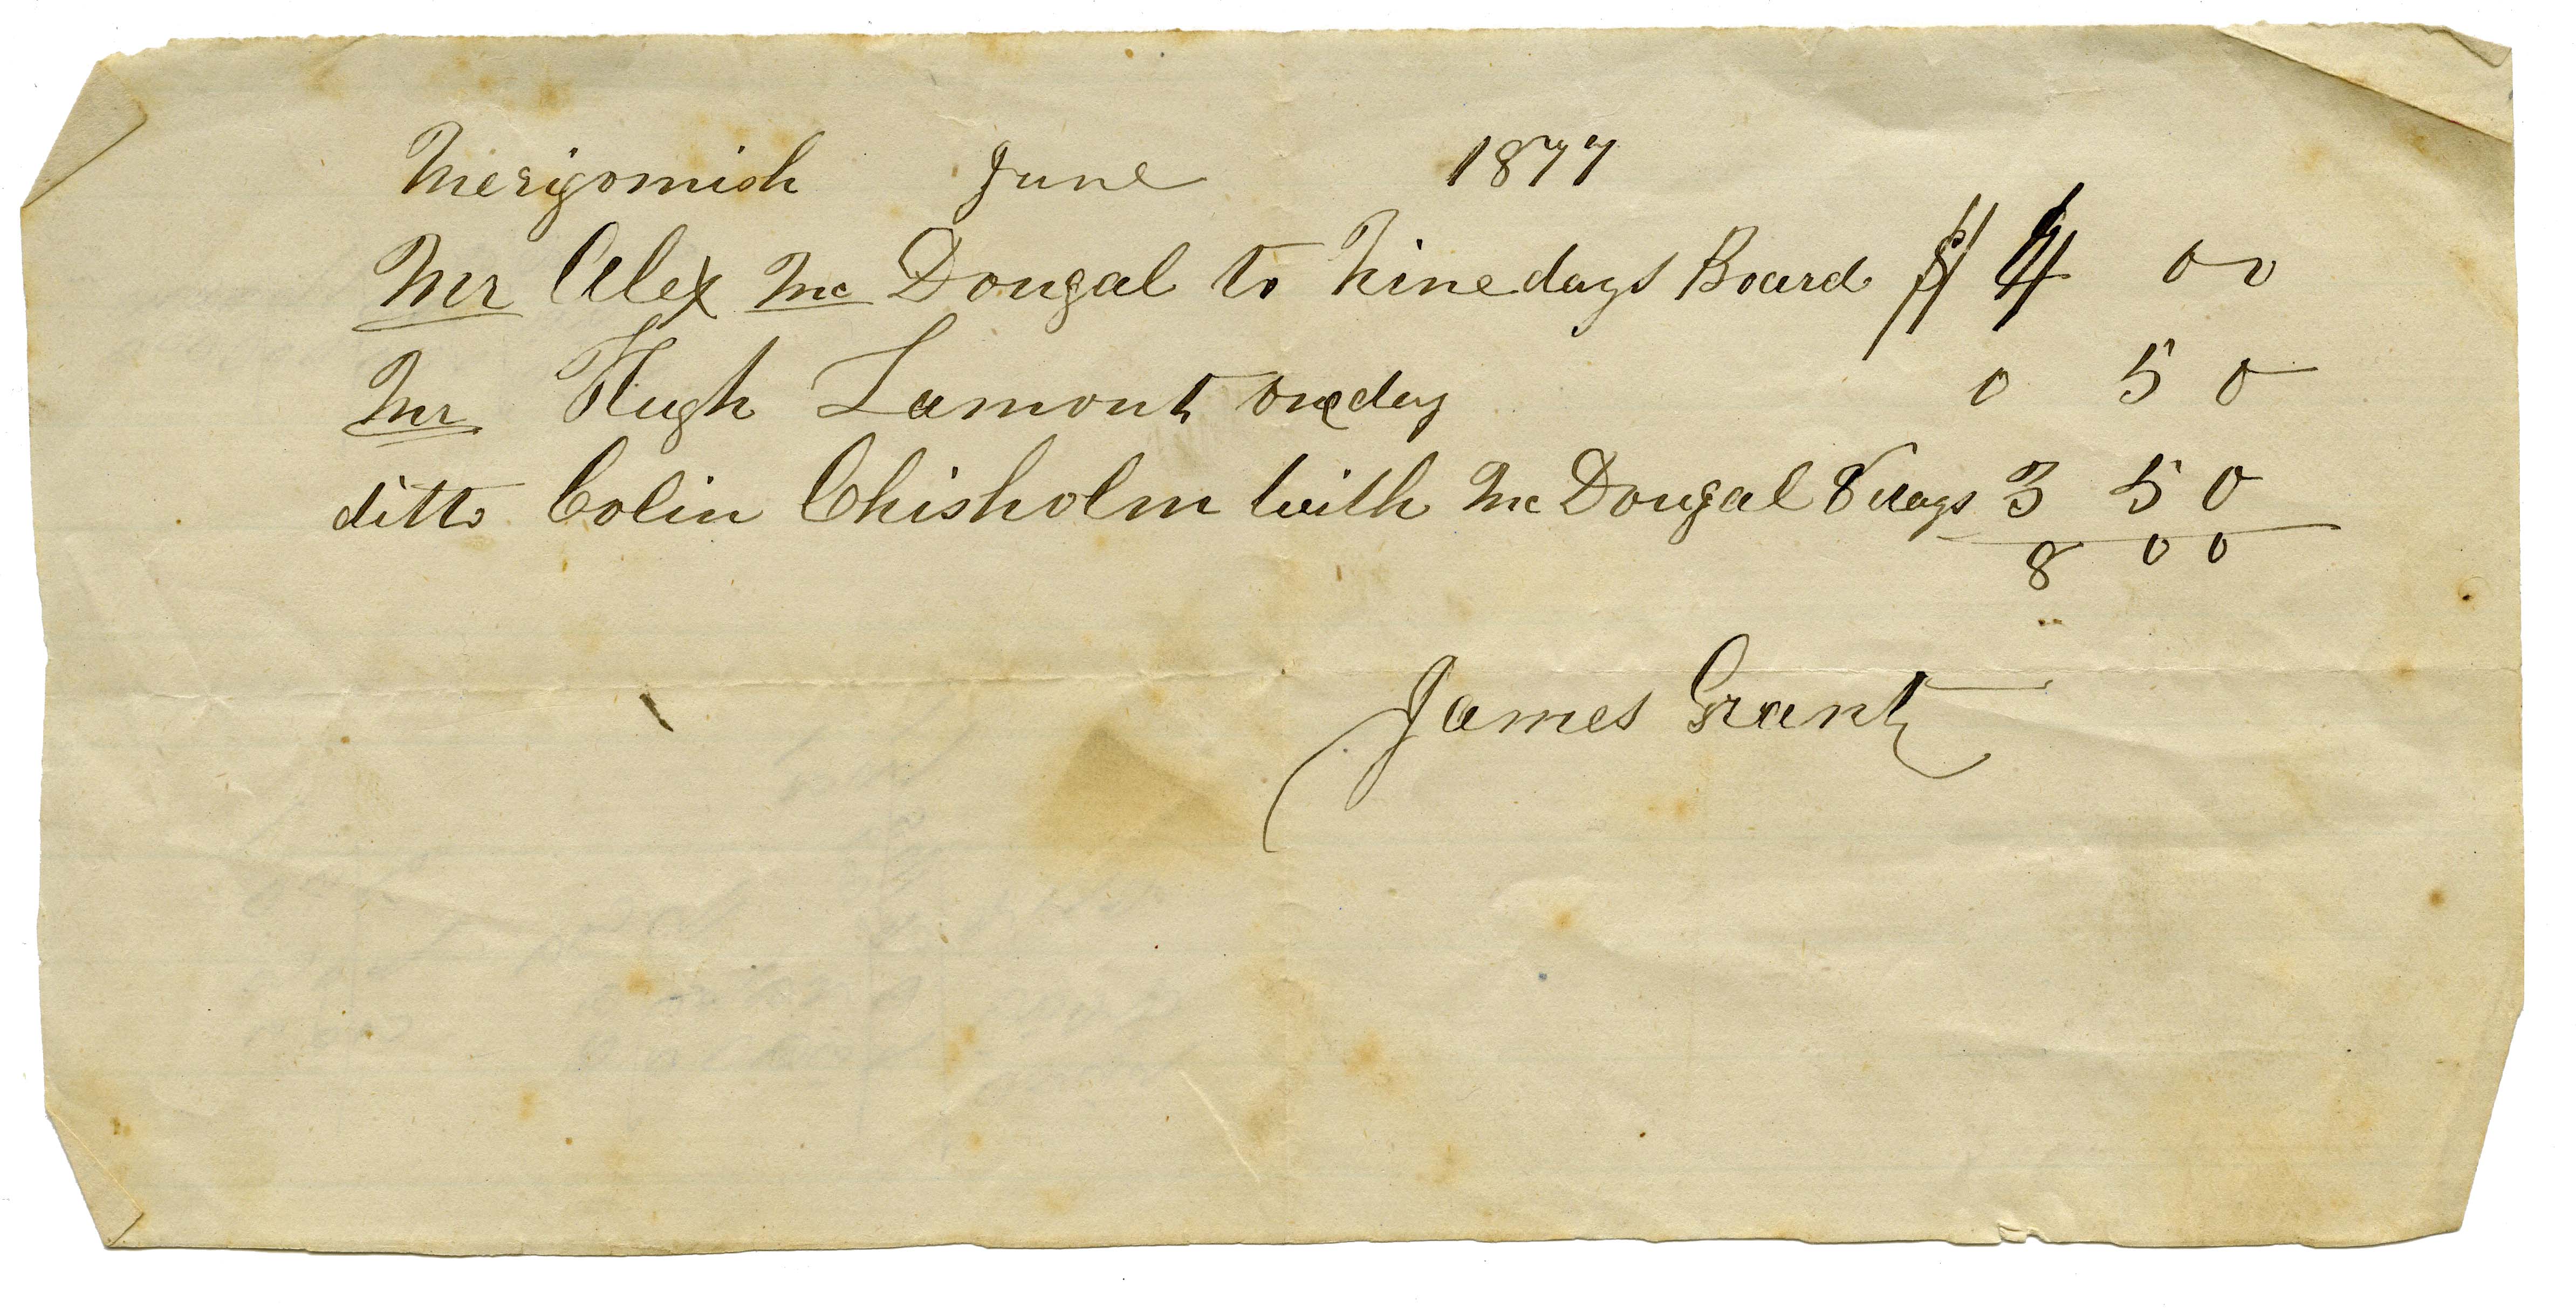 Merigomish June 1877
Mr Alex Mc Dougal to Nine days Board $ 4 00
Mr Hugh Lamont one day 0 50
ditto Colin Chisholm with Mc Dougal 8 days 3 50
8 00
James Grant